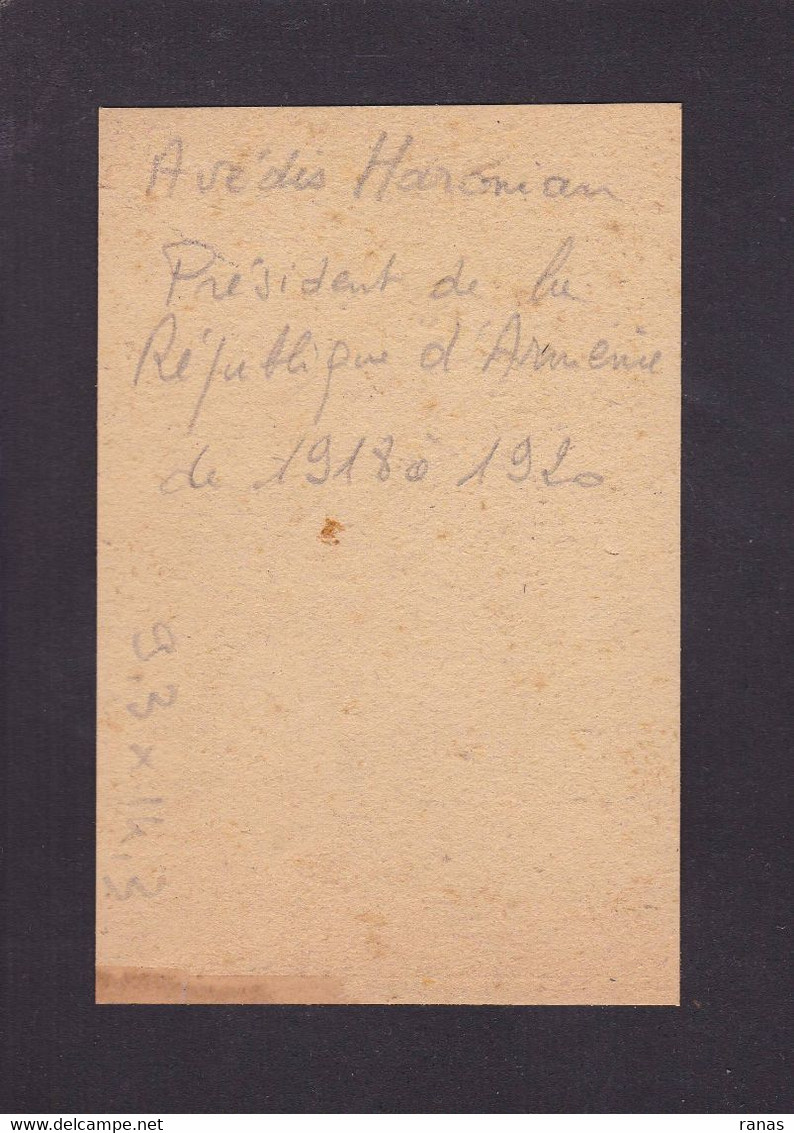 Avédis Haronian
Président de la
République d'Arménie
de 1918 à 1920
9.3 x 14.3
delcampe.net
ranas